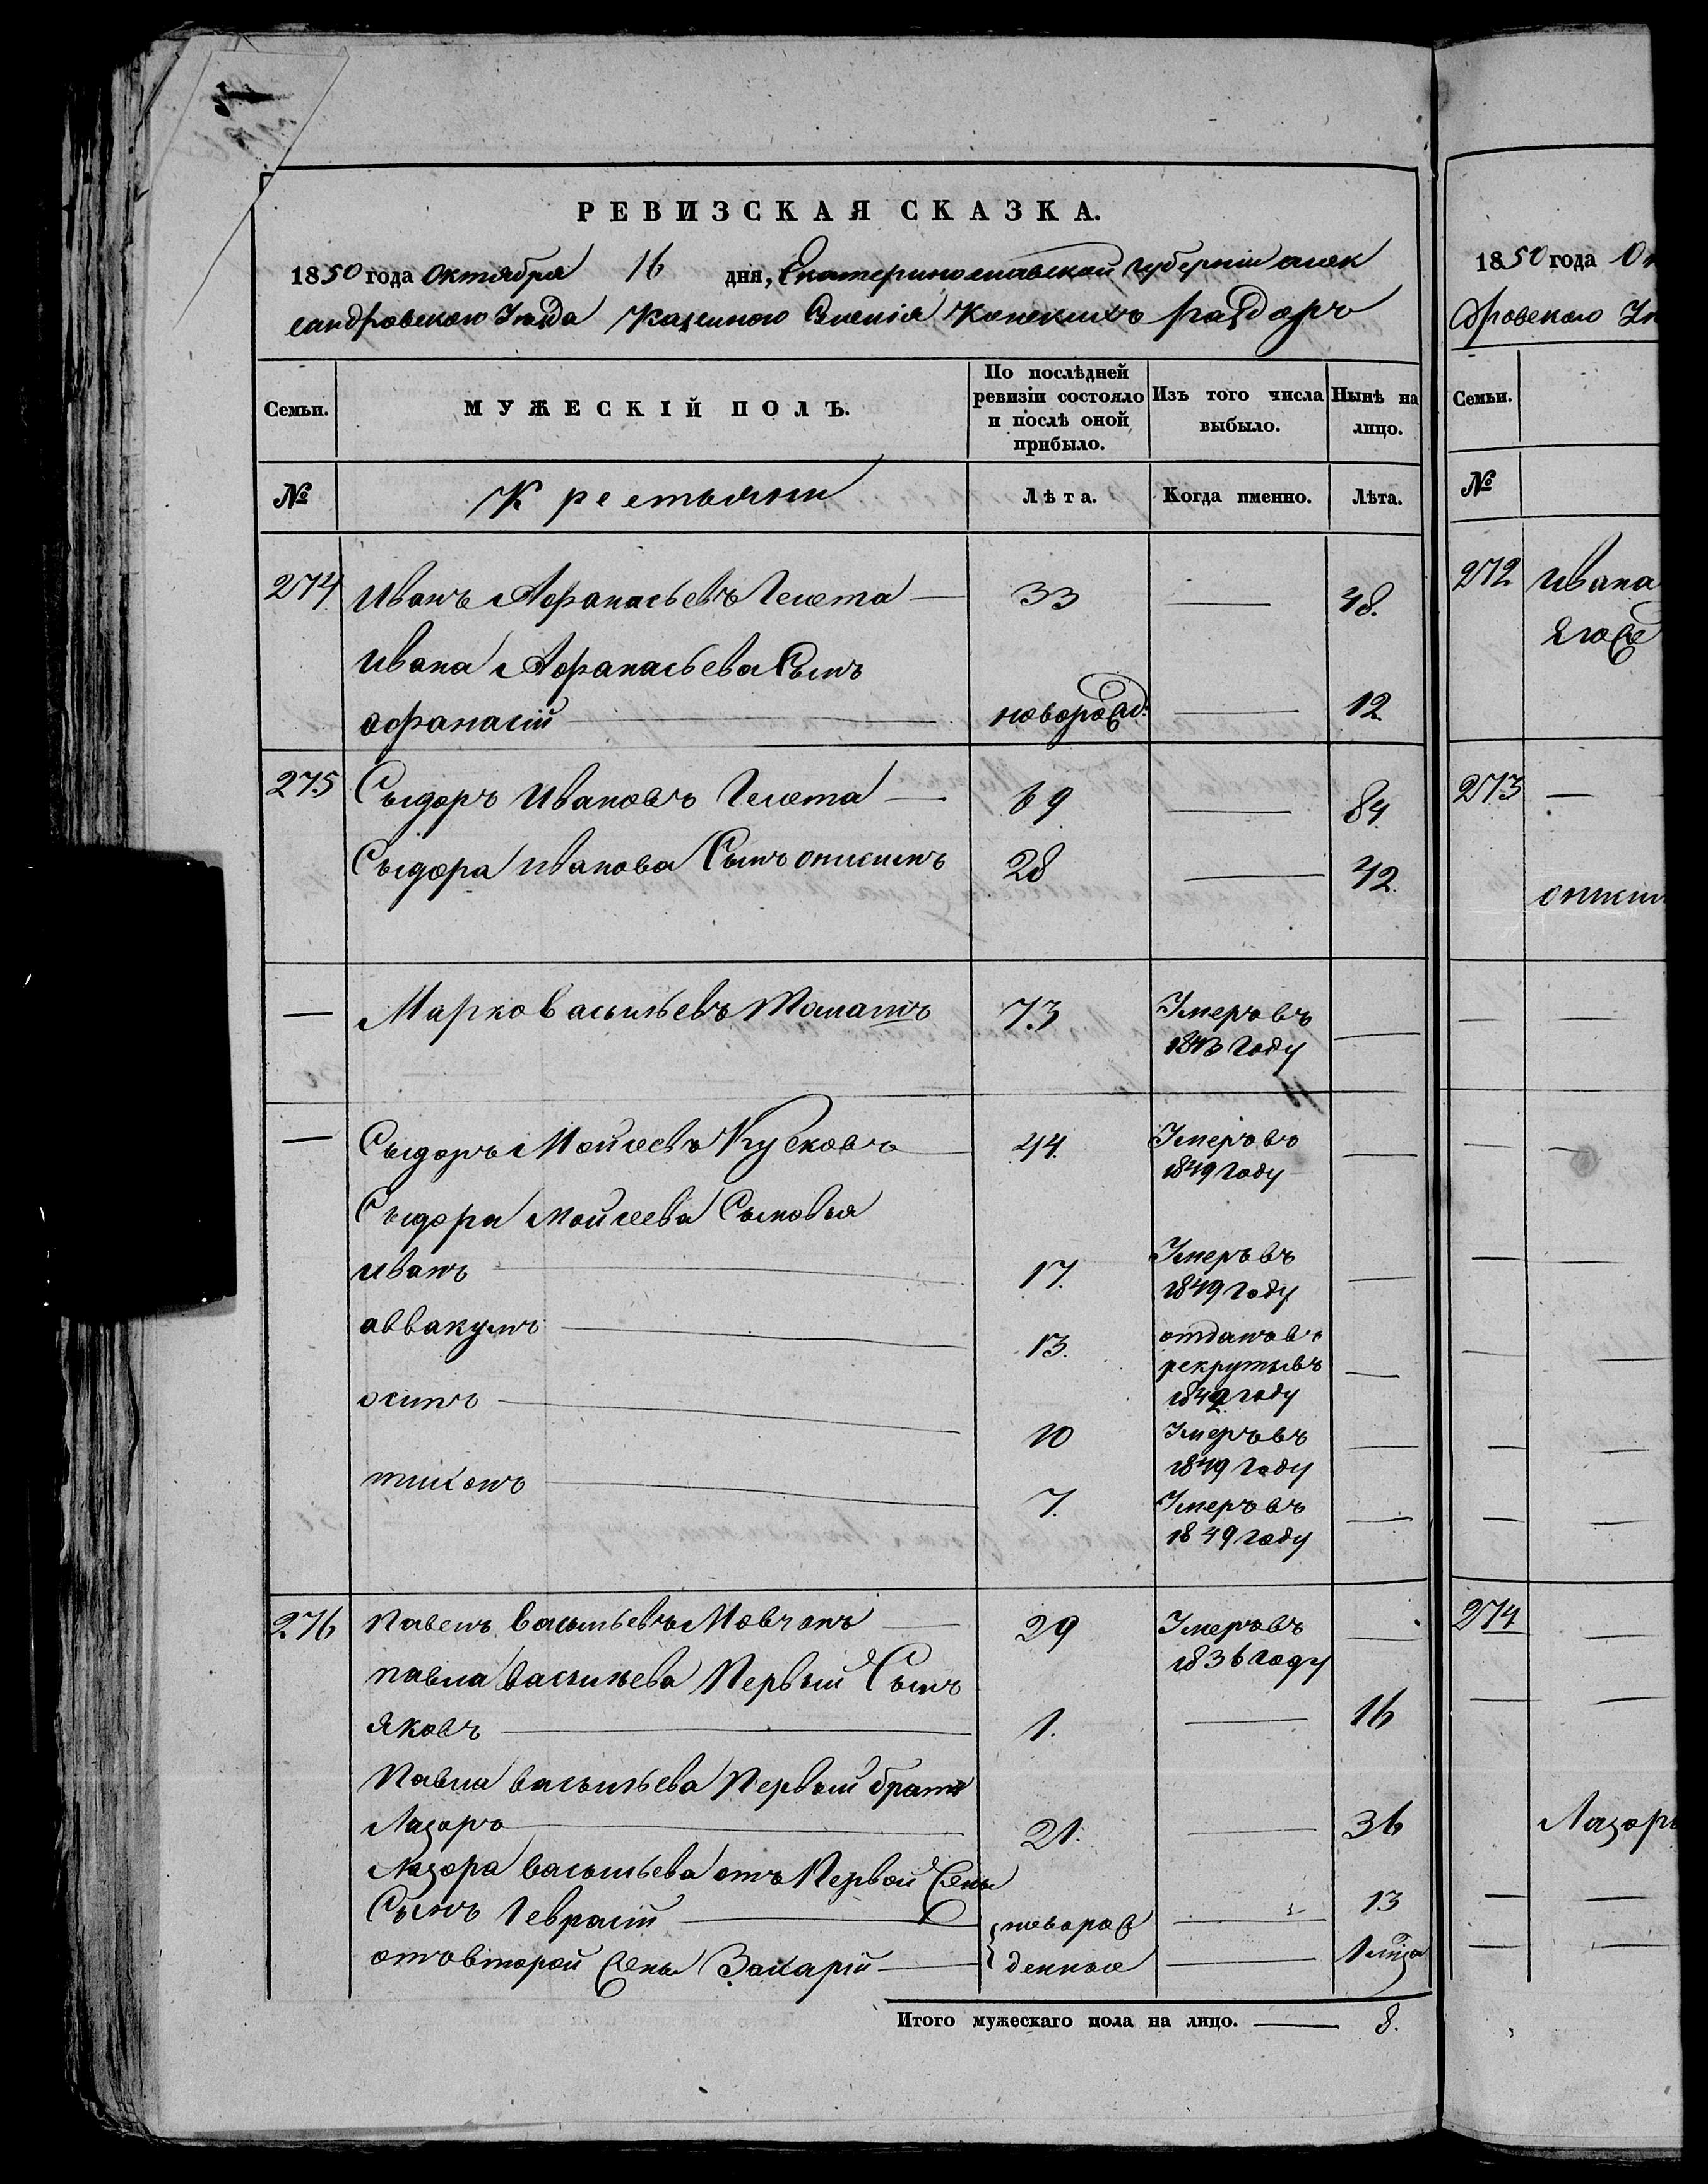 РЕВИЗСКАЯ СКАЗКА.
1850 года Октября 16 дня, Екатеринославской губернии алек
сандровского Уезда Казенного Селенія Конскихъ раздоръ
Семьи. МУЖЕСКІЙ ПОЛЪ. По послѣдней ревизіи состояло и послѣ оной прибыло. Изъ того числа выбыло. Нынѣ на лицо.
№ Крестьяни Лѣта. Когда именно. Лѣта.
274 Иванъ Афанасьевъ Гелета 33 — 48.
Ивана Афанасьева Сынъ
афанасій новорожд: — 12.
275 Сыдоръ Ивановъ Гелета 69 — 84
Сыдора Иванова Сынъ оникимъ 28 — 42.
— Марко васыльевъ 73 Умеръ въ —
1843 году
— Сыдоръ Мойсеевъ 44. Умеръ въ —
1849 году
Сыдора Мойсеева Сыновья
иванъ 17. Умеръ въ —
1849 году
аввакумъ 13. отданъ въ
рекруты въ —
1849 году
осипъ 10 Умеръ въ —
1849 году
тихонъ 7. Умеръ въ —
1849 году
276 павелъ васыльевъ Мовчанъ 29 Умеръ въ —
1836 году
павла васыльева Первый Сынъ
яковъ 1. — 16
Павла васыльева Первый братъ
Лазоръ 21. — 36
Лазора васыльева отъ Первой жены
Сынъ Геврасій новорож — 13
отъ второй жены Захарій денные — 1 месяц
Итого мужескаго пола на лицо. — 8.
1850 года Ок
дровского Уе
Семьи.
№
272 Ивана
Его же
273 —
оники
274 —
Лазоръ